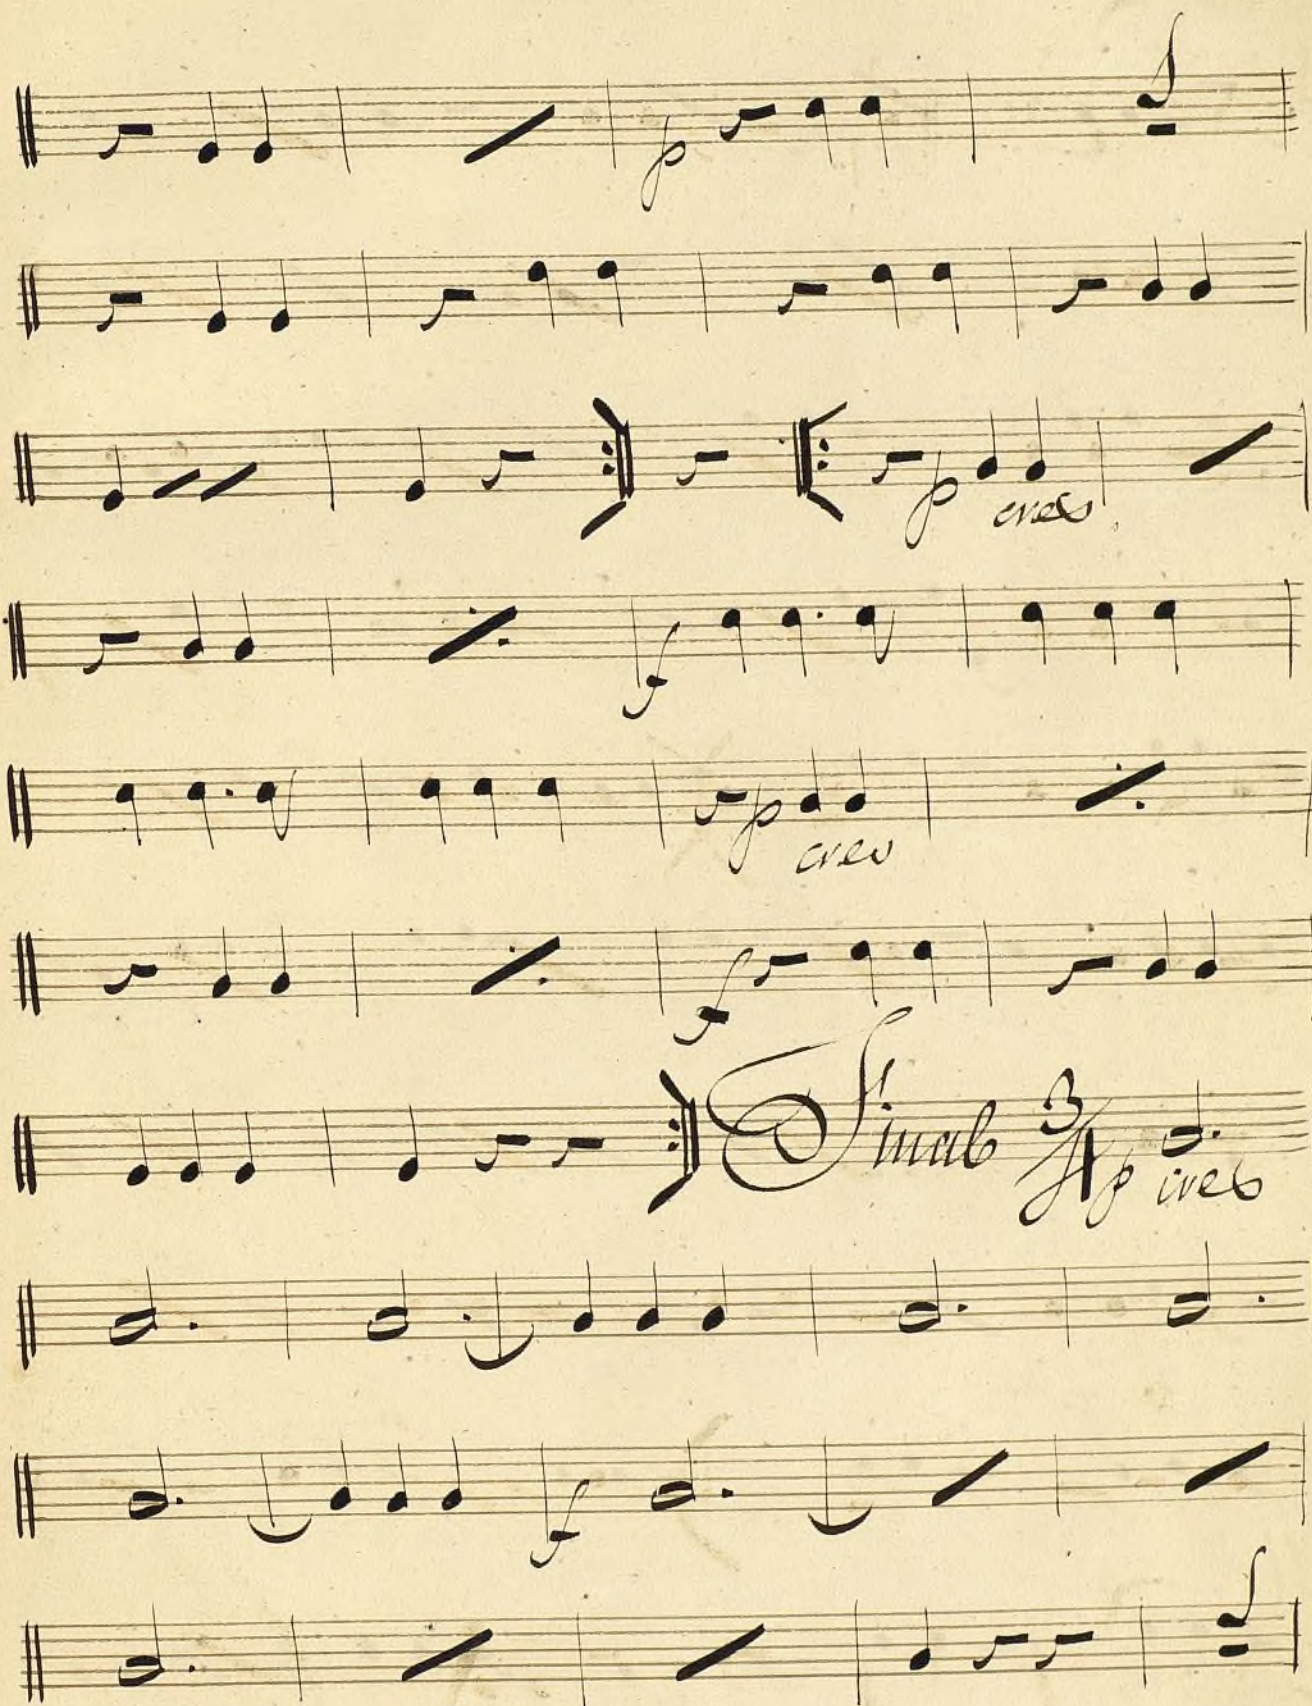 p
p
cres
f
p
cres
f
Final 3/4 p cres
f